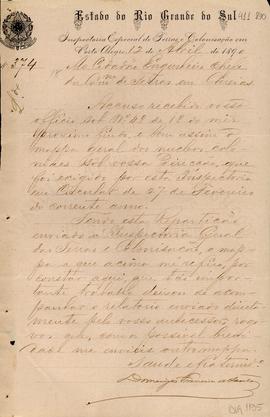 Estado do Rio Grande do Sul
Inspectoria Especial de Terras e Colonisação em
Porto Alegre, 12 de Abril de 1890
Nº 374
Ao Cidadão Engenheiro Chefe
da Comm de Terras em Caxias
Accuso recebido vosso
officio sob Nº 42 de 12 do mez
proximo findo, e bem assim o
mappa geral dos nucleos colo-
niaes sob vossa direcção, que
foi exigido por esta Inspectoria
em Circular de 27 de Fevereiro
do corrente anno.
Tendo esta repartição
enviado a Inspectoria Geral
das Terras e Colonisação, o map-
pa a que acima me refiro, por
constar aqui, que tão impor-
tante trabalho deixou de acom-
panhar o relatorio enviado directa-
mente pelo vosso antecessor, rogo-
vos que, com a possivel brevi-
dade me envieis outro mappa.
Saude e fraternid.